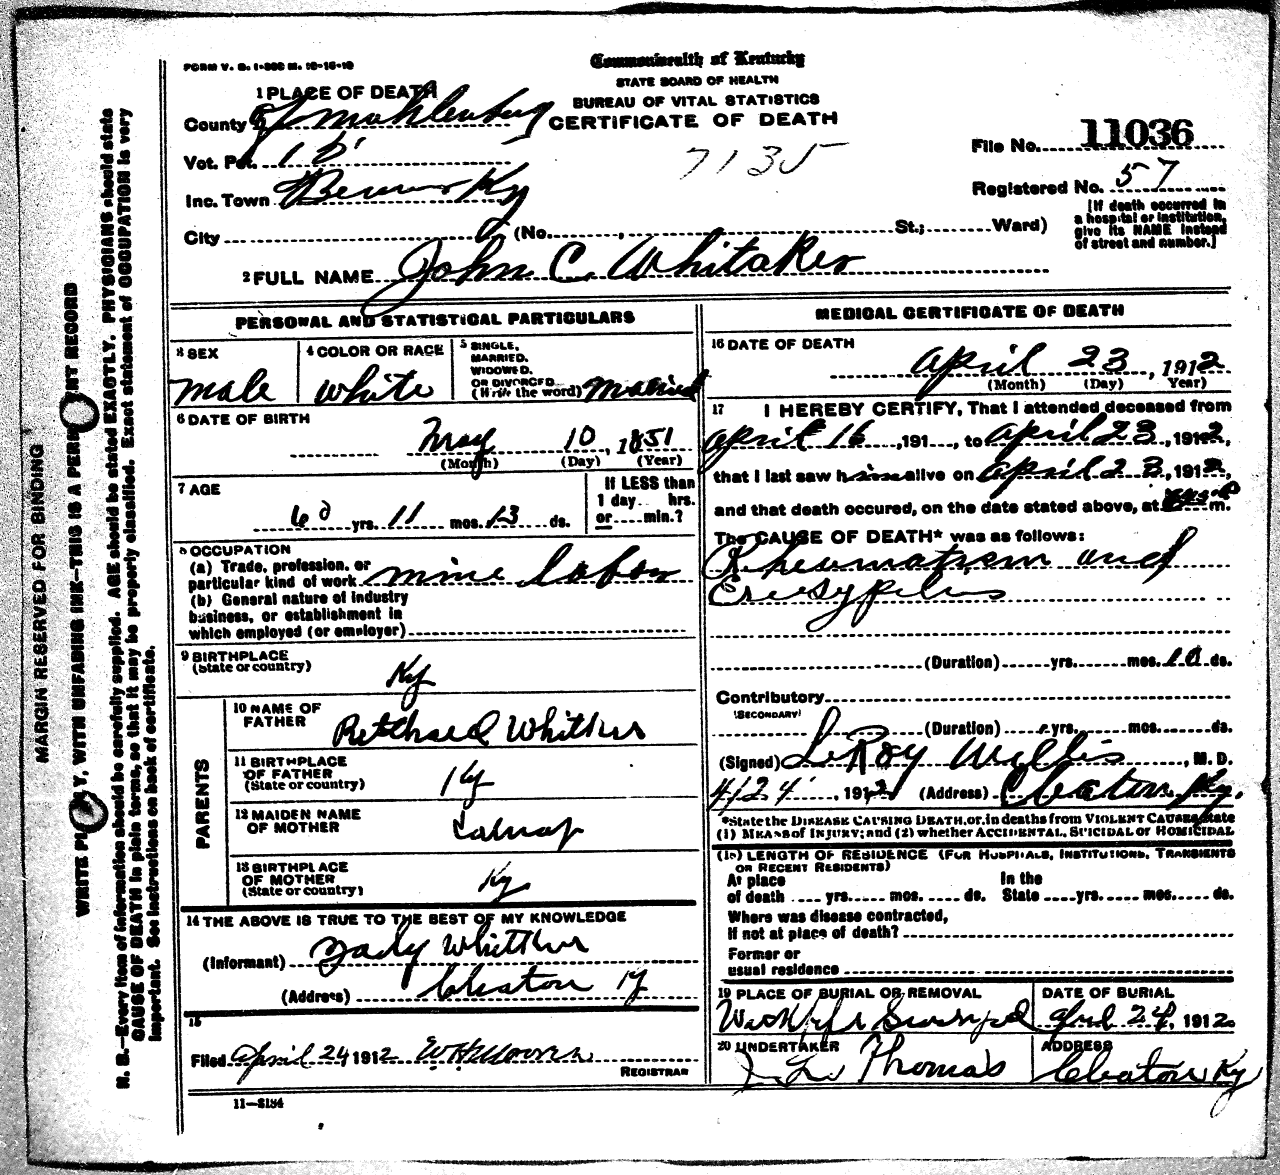 FORM V. S. 1-
Commonwealth of Kentucky
STATE BOARD OF HEALTH
BUREAU OF VITAL STATISTICS
CERTIFICATE OF DEATH
1 PLACE OF DEATH
County Muhlenberg
Vot. Pct.
Inc. Town Ky
City (No. , St.; Ward)
7135
File No. 11036
Registered No. 57
[If death occurred in a hospital or institution, give its NAME instead of street and number.]
2 FULL NAME John C. Whitaker
PERSONAL AND STATISTICAL PARTICULARS
3 SEX male
4 COLOR OR RACE white
5 SINGLE, MARRIED, WIDOWED, OR DIVORCED (Write the word) Married
6 DATE OF BIRTH
May 10, 1851
(Month) (Day) (Year)
7 AGE
60 yrs. 11 mos. 13 ds.
If LESS than 1 day hrs. or min.?
8 OCCUPATION
(a) Trade, profession, or
particular kind of work mine labor
(b) General nature of industry
business, or establishment in
which employed (or employer)
9 BIRTHPLACE
(State or country)
Ky
PARENTS
10 NAME OF FATHER Whittker
11 BIRTHPLACE OF FATHER (State or country) Ky
12 MAIDEN NAME OF MOTHER
13 BIRTHPLACE OF MOTHER (State or country) Ky
14 THE ABOVE IS TRUE TO THE BEST OF MY KNOWLEDGE
(Informant) Whittker
(Address) Cleaton Ky
15
Filed April 24 1912
REGISTRAR
11—8184
MEDICAL CERTIFICATE OF DEATH
16 DATE OF DEATH
April 23, 1912
(Month) (Day) Year)
17 I HEREBY CERTIFY, That I attended deceased from
April 16, 191 , to April 23, 1912,
that I last saw him alive on April 23, 1912,
and that death occured, on the date stated above, at m.
The CAUSE OF DEATH* was as follows:
Rheumatism and
Erisypelus
(Duration) yrs. mos. 10 ds.
Contributory
(SECONDARY)
(Duration) yrs. mos. ds.
(Signed) LeRoy Willis, M. D.
4/24, 1912 (Address) Cleaton, Ky.
*State the DISEASE CAUSING DEATH, or, in deaths from VIOLENT CAUSES, state
(1) MEANS of INJURY; and (2) whether ACCIDENTAL, SUICIDAL or HOMICIDAL
(18) LENGTH OF RESIDENCE (FOR HOSPITALS, INSTITUTIONS, TRANSIENTS
OR RECENT RESIDENTS)
At place In the
of death yrs. mos. ds. State yrs. mos. ds.
Where was disease contracted,
if not at place of death?
Former or
usual residence
19 PLACE OF BURIAL OR REMOVAL DATE OF BURIAL
April 24, 1912
20 UNDERTAKER ADDRESS
Thomas Cleaton Ky
MARGIN RESERVED FOR BINDING
WRITE PLAINLY, WITH UNFADING INK—THIS IS A PERMANENT RECORD
N. B.—Every item of information should be carefully supplied. AGE should be stated EXACTLY. PHYSICIANS should state
CAUSE OF DEATH in plain terms, so that it may be properly classified. Exact statement of OCCUPATION is very
important. See instructions on back of certificate.